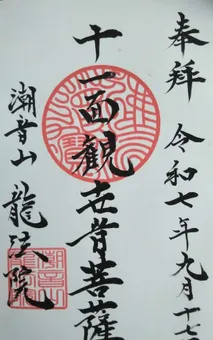 奉拝 令和七年九月十七
十一面観世音菩薩
潮音山 龍法院